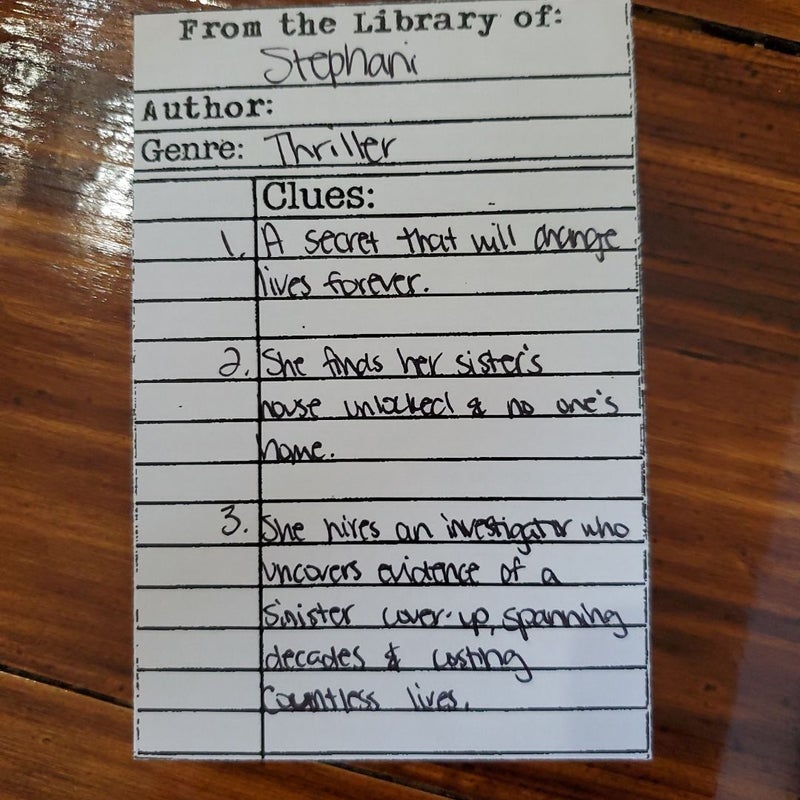 From the Library of:
Stephani
Author:
Genre: Thriller
Clues:
1. A secret that will change
lives forever.
2. She finds her sister's
house unlocked & no one's
home.
3. She hires an investigator who
uncovers evidence of a
sinister cover-up, spanning
decades & costing
countless lives.